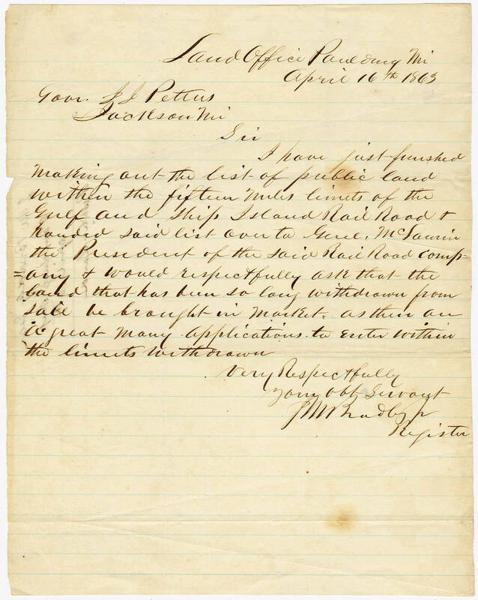 Land Office Paulding Mi
April 16th 1863
Gov. J J Pettus
Jackson Mi
Sir
I have just finished
making out the list of public land
within the fifteen miles limits of the
Gulf and Ship Island Rail Road &
handed said list over to Genl, McLaurin
the President of the said Rail Road Comp-
=any & would respectfully ask that the
land that has been so long withdrawn from
sale be brought in market. as their are
a great many applications to enter within
the limits withdrawn
Very Respectfully
Your Obt Servant
Register